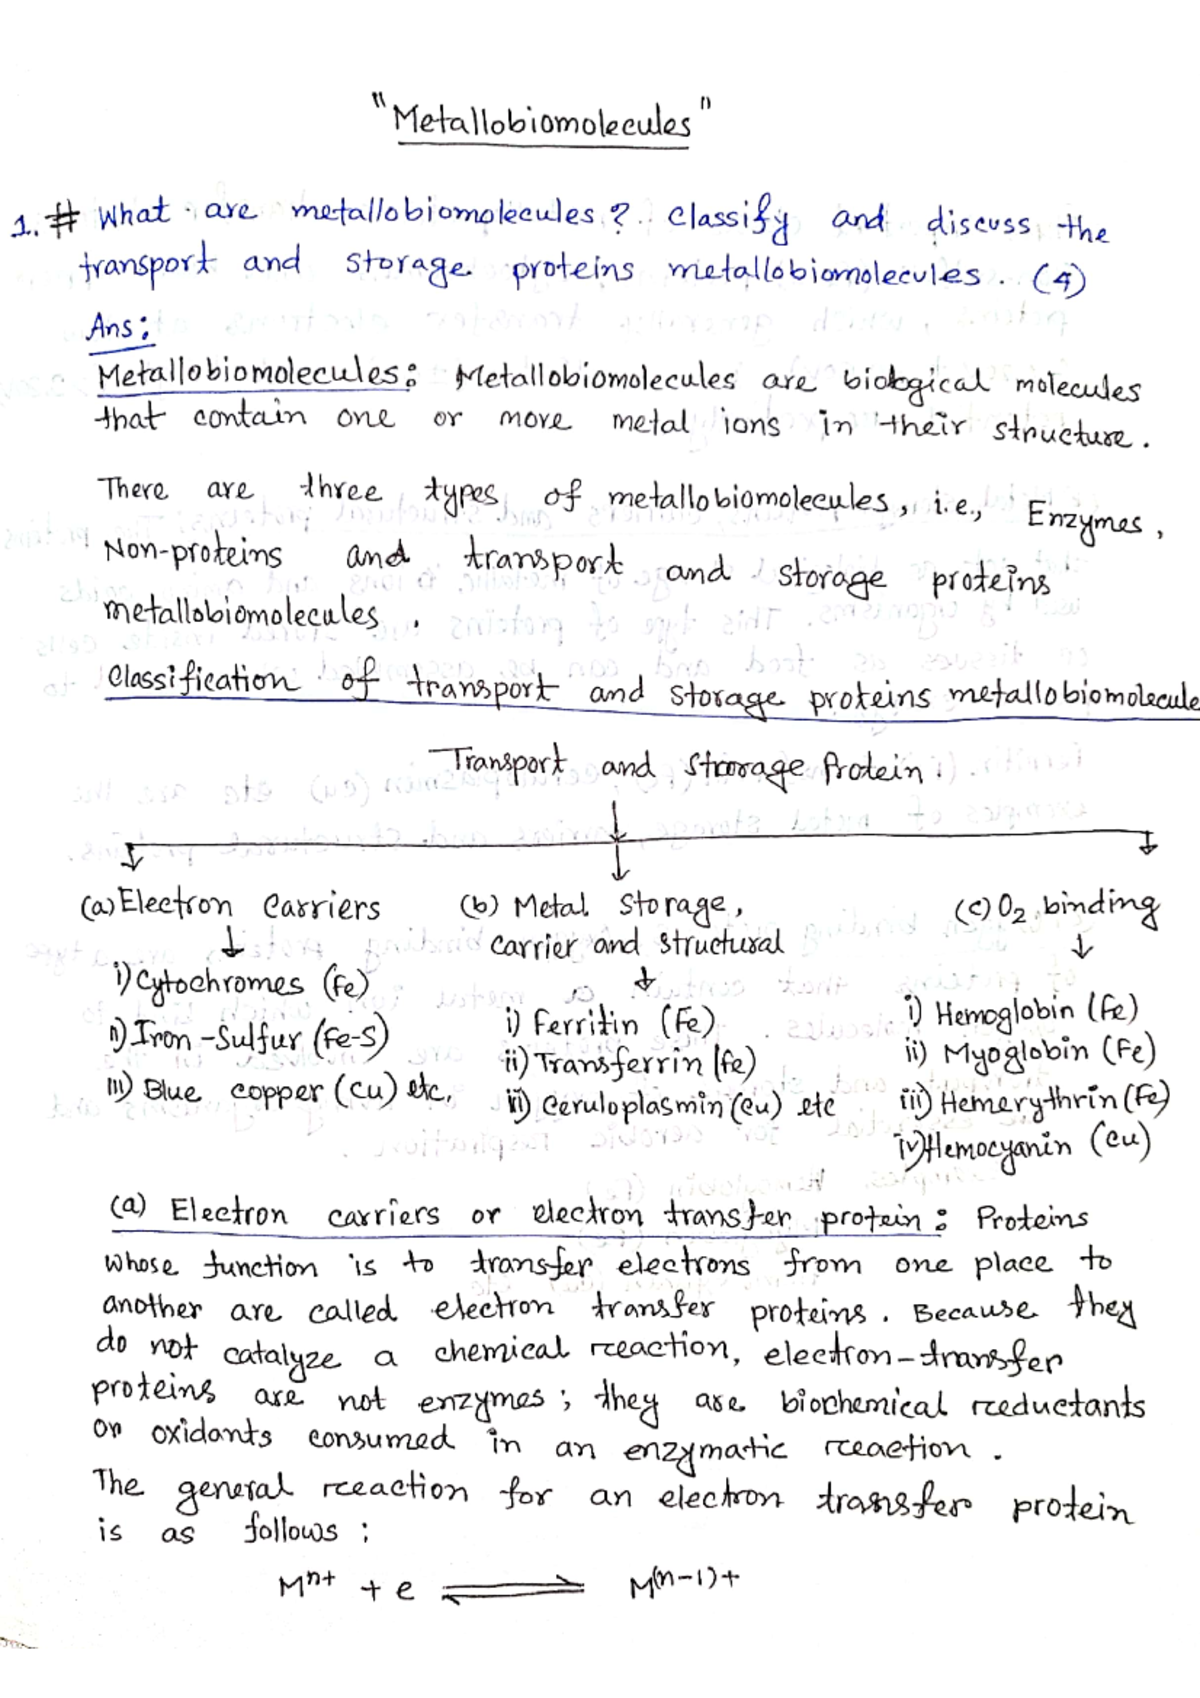 "Metallobiomolecules"
1. # What are metallobiomolecules? Classify and discuss the
transport and storage proteins metallobiomolecules. (4)
Ans:
Metallobiomolecules: Metallobiomolecules are biological molecules
that contain one or more metal ions in their structure.
There are three types of metallobiomolecules, i.e., Enzymes,
Non-proteins and transport and storage proteins
metallobiomolecules.
Classification of transport and storage proteins metallobiomolecule
Transport and Storage Protein.
(a) Electron Carriers (b) Metal Storage, (c) O2 binding
carrier and structural
i) Cytochromes (Fe)
ii) Iron-Sulfur (Fe-S) i) Ferritin (Fe) i) Hemoglobin (Fe)
iii) Blue copper (Cu) etc. ii) Transferrin (Fe) ii) Myoglobin (Fe)
iii) Ceruloplasmin (Cu) etc iii) Hemerythrin (Fe)
iv) Hemocyanin (Cu)
(a) Electron carriers or electron transfer protein: Proteins
whose function is to transfer electrons from one place to
another are called electron transfer proteins. Because they
do not catalyze a chemical reaction, electron-transfer
proteins are not enzymes; they are biochemical reductants
or oxidants consumed in an enzymatic reaction.
The general reaction for an electron transfer protein
is as follows:
Mⁿ⁺ + e ⇌ M⁽ⁿ⁻¹⁾⁺